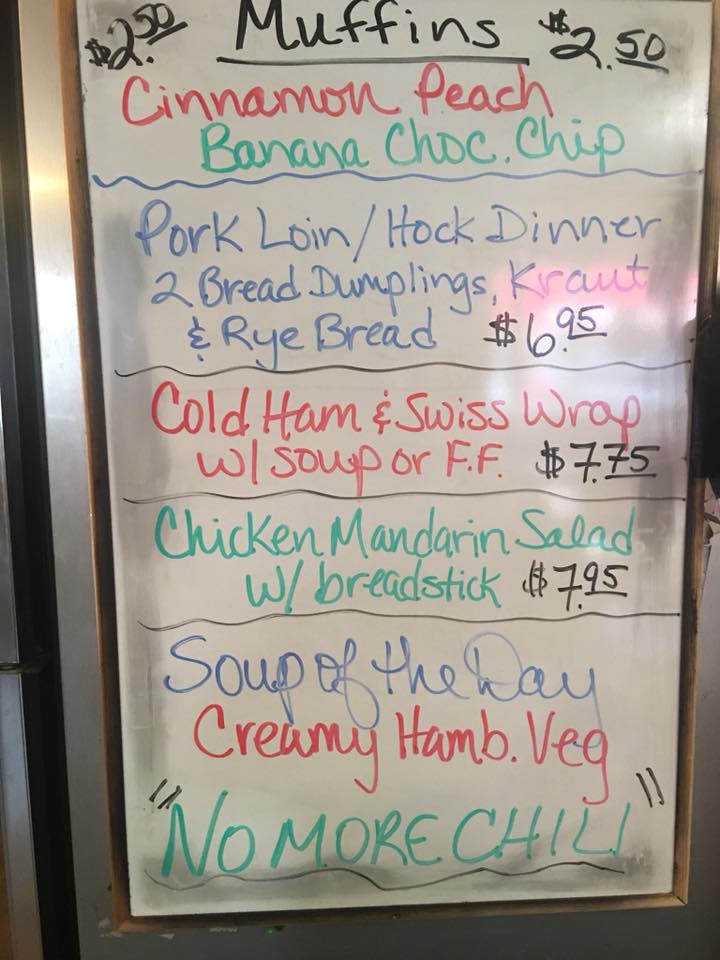 $2.50 Muffins $2.50
Cinnamon Peach
Banana Choc. Chip
Pork Loin/Hock Dinner
2 Bread Dumplings, Kraut
& Rye Bread $6.95
Cold Ham & Swiss Wrap
w/ soup or F.F. $7.75
Chicken Mandarin Salad
w/ breadstick $7.95
Soup of the Day
Creamy Hamb. Veg
"NO MORE CHILI"